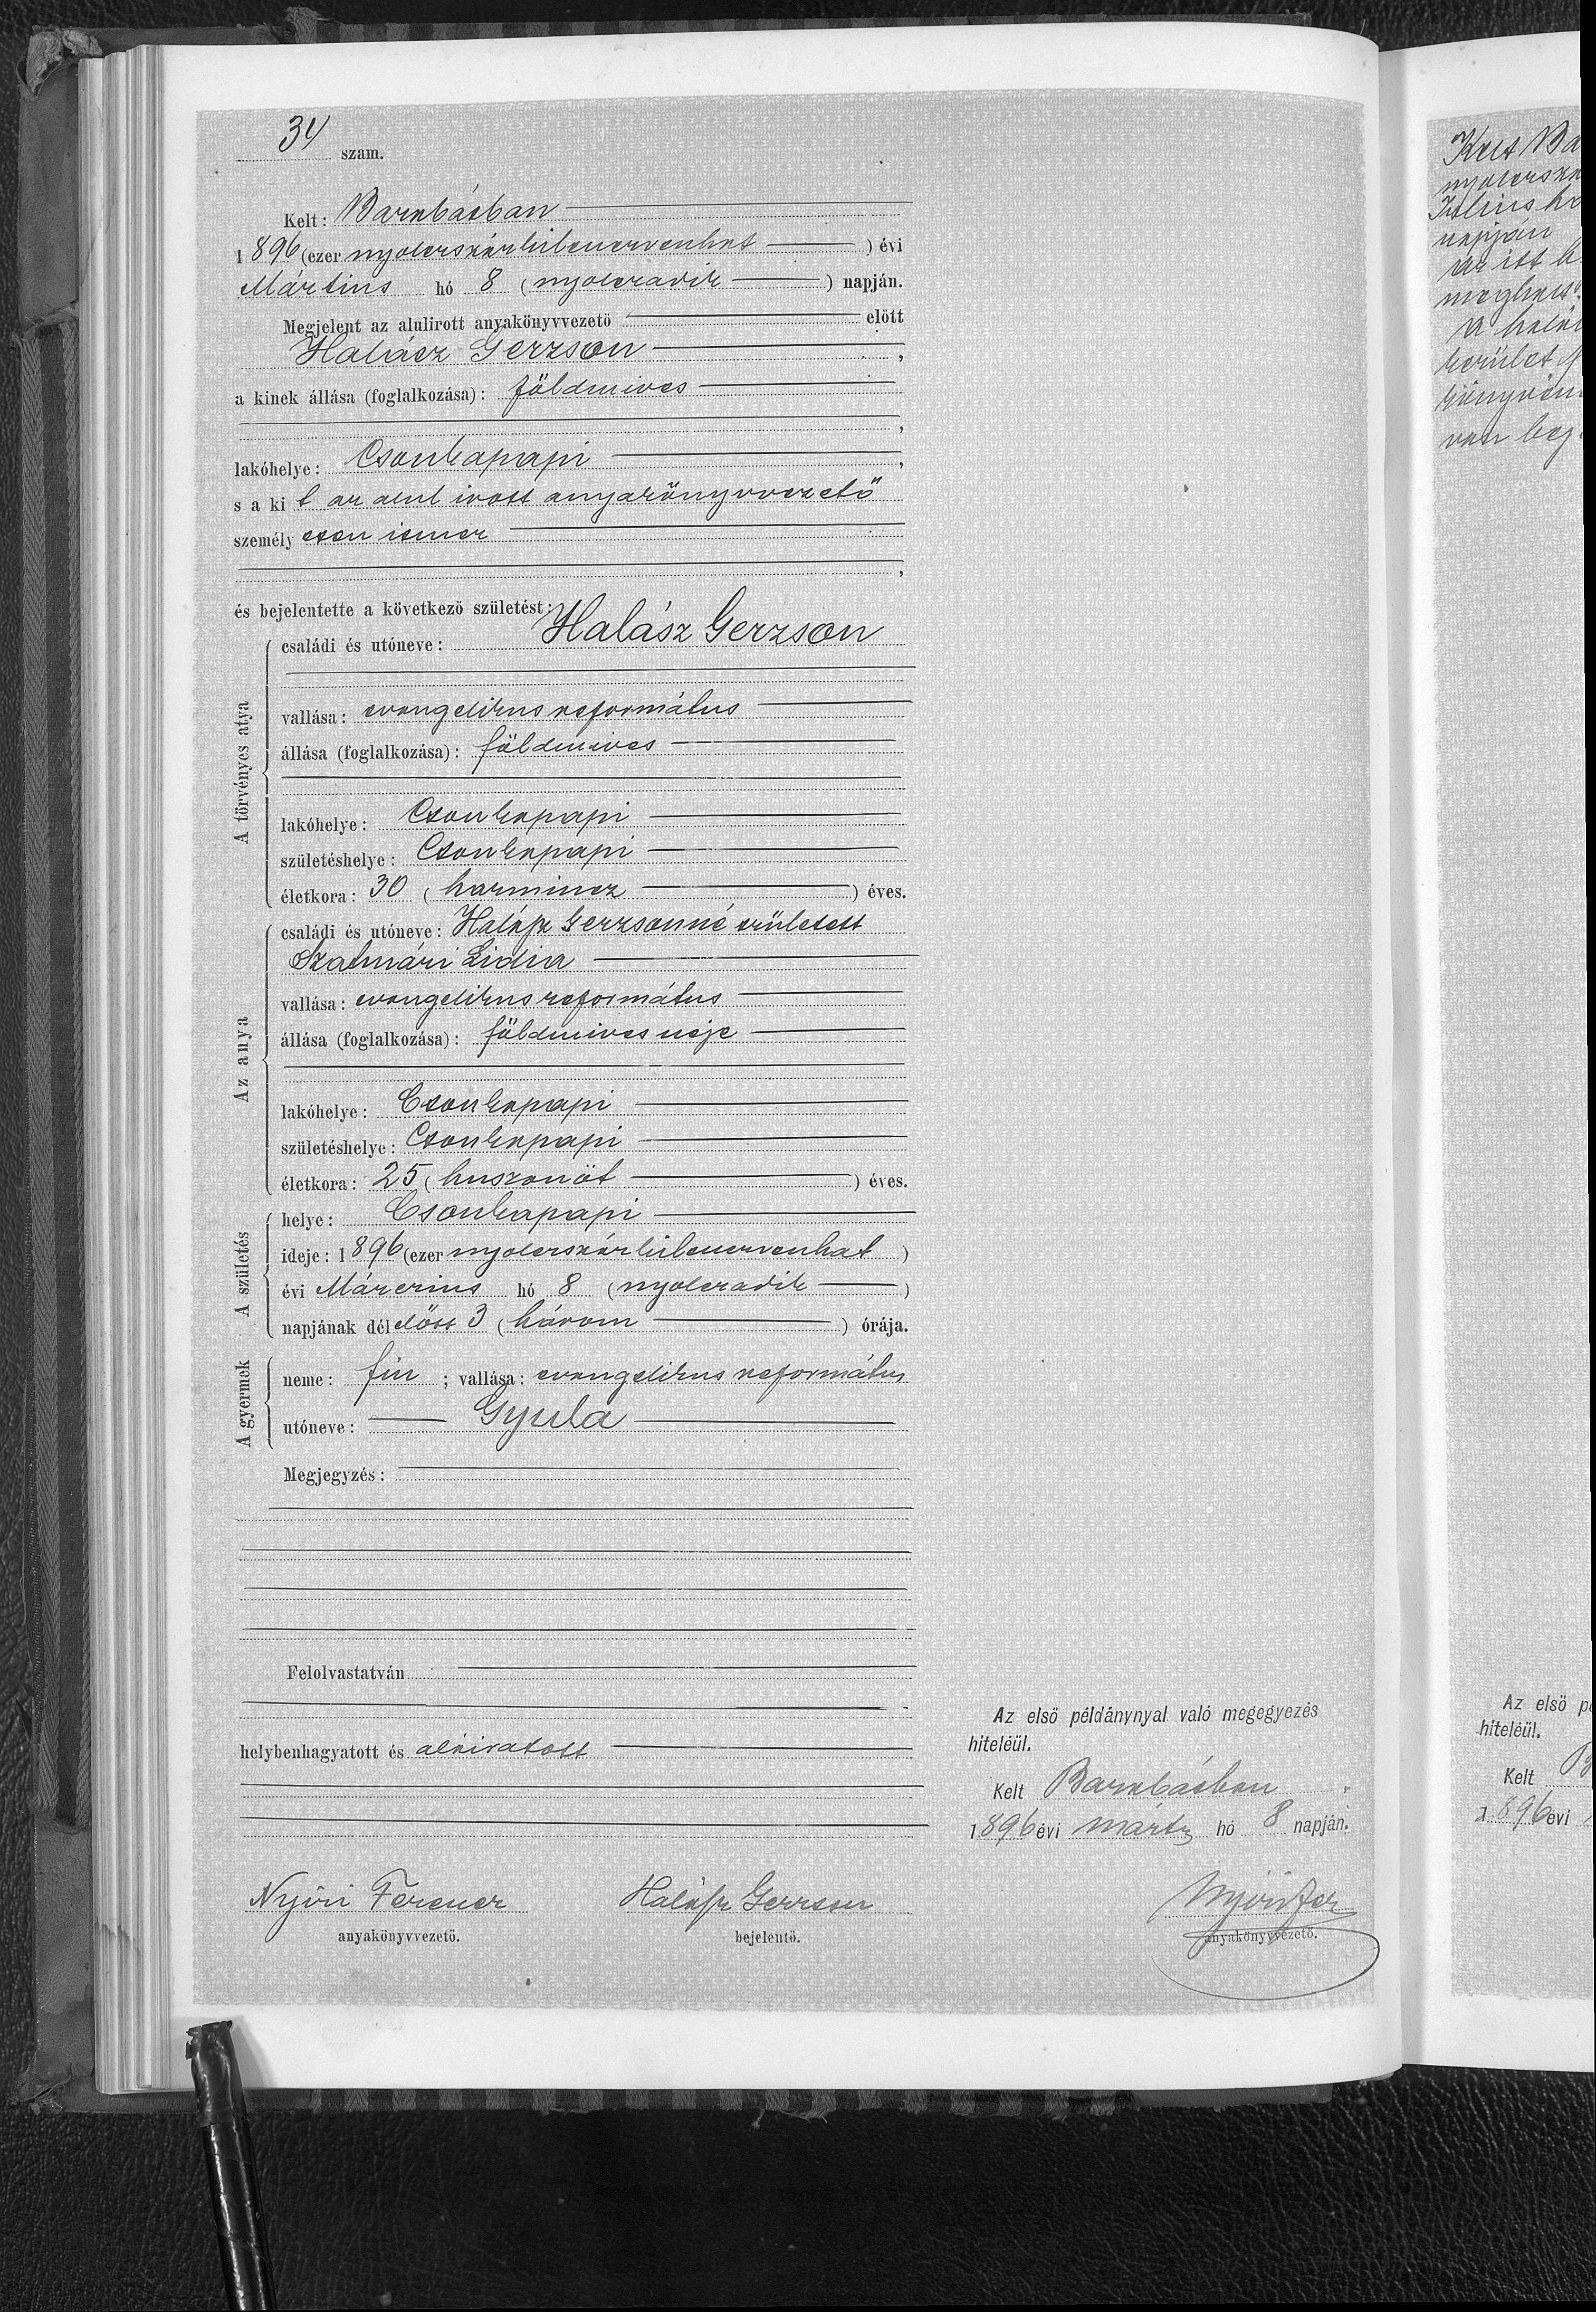 34 szám.
Kelt: Barabásban
1896 (ezer nyolczszázkilenczvenhat) évi
Mártius hó 8 (nyolczadik) napján.
Megjelent az alulirott anyakönyvvezető előtt
Halász Gerzson,
a kinek állása (foglalkozása): földmives
,
lakóhelye: Csonkapapi,
s a kit az alul irott anyakönyvvezető
személyesen ismer
,
és bejelentette a következő születést:
A törvényes atya
családi és utóneve: Halász Gerzson
vallása: evangelikus református
állása (foglalkozása): földmives
lakóhelye: Csonkapapi
születéshelye: Csonkapapi
életkora: 30 (harmincz) éves.
Az anya
családi és utóneve: Halász Gerzsonné született
Szatmári Lidia
vallása: evangelikus református
állása (foglalkozása): földmives neje
lakóhelye: Csonkapapi
születéshelye: Csonkapapi
életkora: 25 (huszonöt) éves.
A születés
helye: Csonkapapi
ideje: 1896 (ezer nyolczszázkilenczvenhat)
évi Márczius hó 8 (nyolczadik)
napjának délelőtt 3 (három) órája.
A gyermek
neme: fiu; vallása: evangelikus református
utóneve: Gyula
Megjegyzés:
Felolvastatván
helybenhagyatott és aláiratott
Nyiri Ferencz
anyakönyvvezető.
Halász Gerzson
bejelentő.
Az első példánynyal való megegyezés
hiteléül.
Kelt Barabásban,
1896 évi mártz hó 8 napján.
Nyiri Fer
anyakönyvvezető.
Kelt Ba
napján
az itt
van bej
Az első pé
hiteléül.
Kelt B
1896 évi